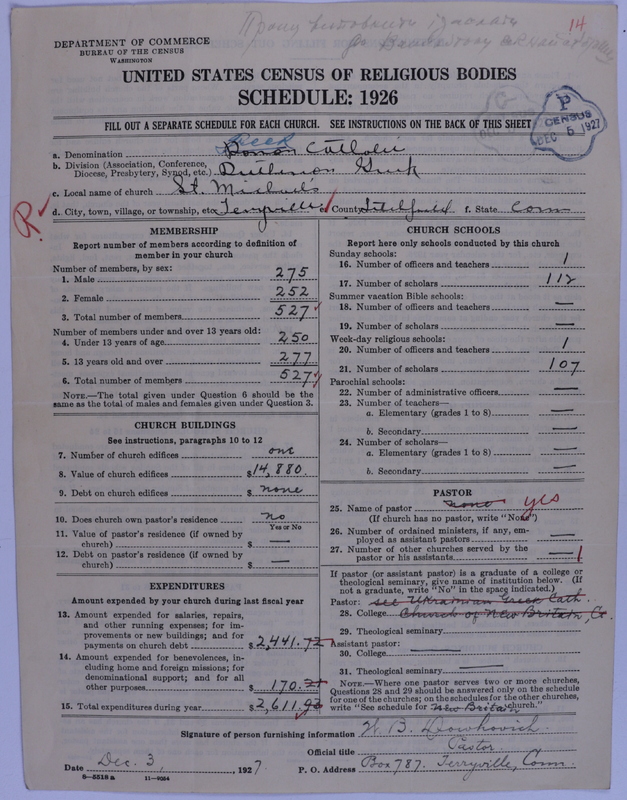 Прошу виповнити і заслати
14
DEPARTMENT OF COMMERCE
BUREAU OF THE CENSUS
WASHINGTON
UNITED STATES CENSUS OF RELIGIOUS BODIES
SCHEDULE: 1926
P
CENSUS
DEC 5 1927
FILL OUT A SEPARATE SCHEDULE FOR EACH CHURCH. SEE INSTRUCTIONS ON THE BACK OF THIS SHEET
Greek
a. Denomination Roman Catholic
b. Division (Association, Conference,
Diocese, Presbytery, Synod, etc.) Ruthenian Greek
c. Local name of church St. Michaels
R
d. City, town, village, or township, etc. Terryville e. County Litchfield f. State Conn
MEMBERSHIP
Report number of members according to definition of
member in your church
Number of members, by sex:
1. Male 275
2. Female 252
3. Total number of members 527
Number of members under and over 13 years old:
4. Under 13 years of age 250
5. 13 years old and over 277
6. Total number of members 527
NOTE.—The total given under Question 6 should be the
same as the total of males and females given under Question 3.
CHURCH BUILDINGS
See instructions, paragraphs 10 to 12
7. Number of church edifices one
8. Value of church edifices $14,880.
9. Debt on church edifices $ none
10. Does church own pastor's residence no
Yes or No
11. Value of pastor's residence (if owned by
church) $ —
12. Debt on pastor's residence (if owned by
church) $ —
EXPENDITURES
Amount expended by your church during last fiscal year
13. Amount expended for salaries, repairs,
and other running expenses; for im-
provements or new buildings; and for
payments on church debt $2,441.72
14. Amount expended for benevolences, in-
cluding home and foreign missions; for
denominational support; and for all
other purposes $ 170.21
15. Total expenditures during year $2,611.93
CHURCH SCHOOLS
Report here only schools conducted by this church
Sunday schools:
16. Number of officers and teachers 1
17. Number of scholars 112
Summer vacation Bible schools:
18. Number of officers and teachers —
19. Number of scholars —
Week-day religious schools:
20. Number of officers and teachers 1
21. Number of scholars 107
Parochial schools:
22. Number of administrative officers —
23. Number of teachers—
a. Elementary (grades 1 to 8) —
b. Secondary —
24. Number of scholars—
a. Elementary (grades 1 to 8) —
b. Secondary —
PASTOR
25. Name of pastor none yes
(If church has no pastor, write "None")
26. Number of ordained ministers, if any, em-
ployed as assistant pastors —
27. Number of other churches served by the
pastor or his assistants — 1
If pastor (or assistant pastor) is a graduate of a college or
theological seminary, give name of institution below. (If
not a graduate, write "No" in the space indicated.)
Pastor: see Ukrainian Greek Cath.
28. College Church of New Britain, Ct.
29. Theological seminary
Assistant pastor:
30. College —
31. Theological seminary —
NOTE.—Where one pastor serves two or more churches,
Questions 28 and 29 should be answered only on the schedule
for one of the churches; on the schedules for the other churches,
write "See schedule for New Britain church."
Signature of person furnishing information W. B. Dowhovich
Official title Pastor
Date Dec. 3, 1927. P. O. Address Box 787. Terryville, Conn.
8—5518 a 11—9054